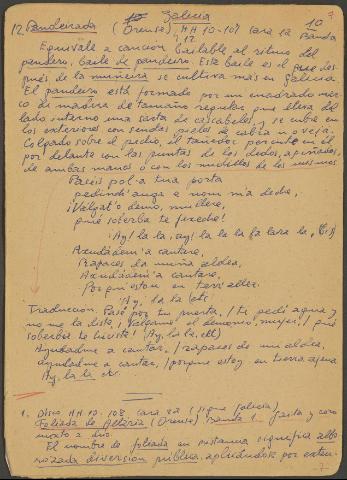 Galicia
12. Pandeirada (Orense) HH 10-108 cara 1a Banda 10
12
Equivale a canción bailable al ritmo del
pandero, baile de pandeiro. Este baile es el que des-
pués de la muñeira se cultiva más en Galicia
El pandeiro está formado por un cuadrado mar-
co de madera de tamaño regular que lleva del
lado interno una sarta de cascabeles y se cubre en
los exteriores con sendas pieles de cabra o oveja.
Colgado sobre el pecho, el tañedor percute en él
por delante con las puntas de los dedos, apiñados,
de ambas manos o con los nudillos de los mismos
Paseis pol-a tua porta
pedinch'auga e nom m'a deche,
¡Valgat'o demo, mullere,
qué soberba te fixeche!
¡Ay! la la, ¡ay! la la la la lara la,
Axudádem'a cantare,
rapaces da miña aldea,
Axudádem'a cantare,
Porqu'estou en terr'aller.
¡Ay, la la etc.
Traducción. Pasé por tu puerta, / te pedí agua y
no me la diste, / Válgame el demonio, mujer, / qué
soberbia te hiciste! (Ay, la la, etc)
Ayudadme a cantar, / rapaces de mi aldea,
ayudadme a cantar, / porque estoy en tierra ajena
Ay, la la etc.
1. Disco HH 10-108, cara 2a (sigue Galicia)
Foliada de Allariz (Orense) Banda 1. Gaita y coro
mixto a dúo.
El nombre de foliada en sustancia significa albo-
rozada diversión pública, aplicándose por exten-
7-